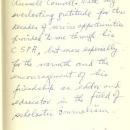 Russell Connall. With my
everlasting gratitude for the
decades of service opportunities
provided to me through his
CSPA, but more especially
for the warmth and the
encouragement of his
friendship as elder and
educator in the field of
scholastic journalism.